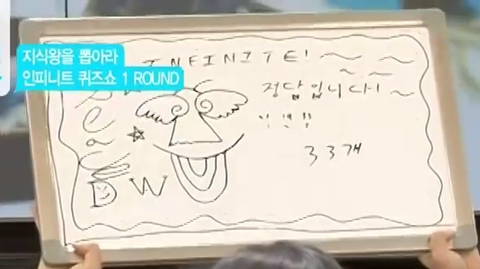 지식왕을 뽑아라
인피니트 퀴즈쇼 1 ROUND
INFINITE!
정답입니다!
33개
DW